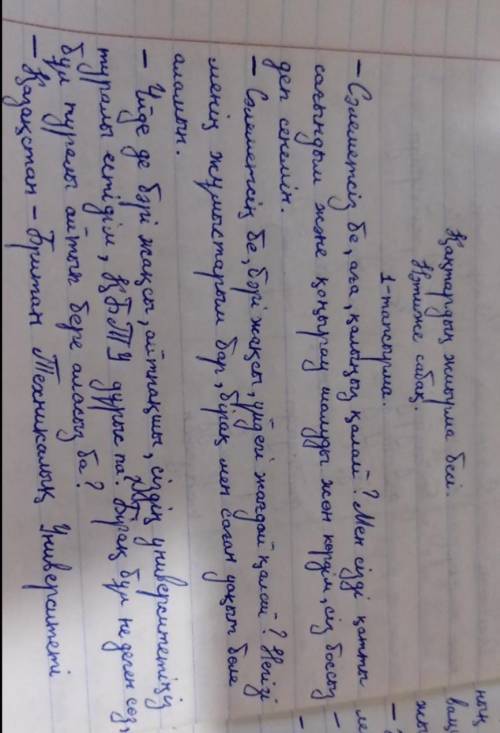 Қаңтардың жиырма бесі.
Нәтиже сабақ.
1-тапсырма.
– Сәлеметсіз бе, аға, қалыңыз қалай? Мен сізді қатты
сағындым және қоңырау шалуды жөн көрдім, сіз боссыз
деп сенемін.
– Сәлеметсің бе, бәрі жақсы, үйдегі жағдай қалай? Негізі
менің жұмыстарым бар, бірақ мен саған уақыт бөле
аламын.
– Үйде де бәрі жақсы, айтпақшы, сіздің университетіңіз
туралы естідім, ҚБТУ дұрыс па. Бірақ бұл не деген сөз,
бұл туралы айтып бере аласың ба?
– Қазақстан – Британ Техникалық Университеті
ның
жы